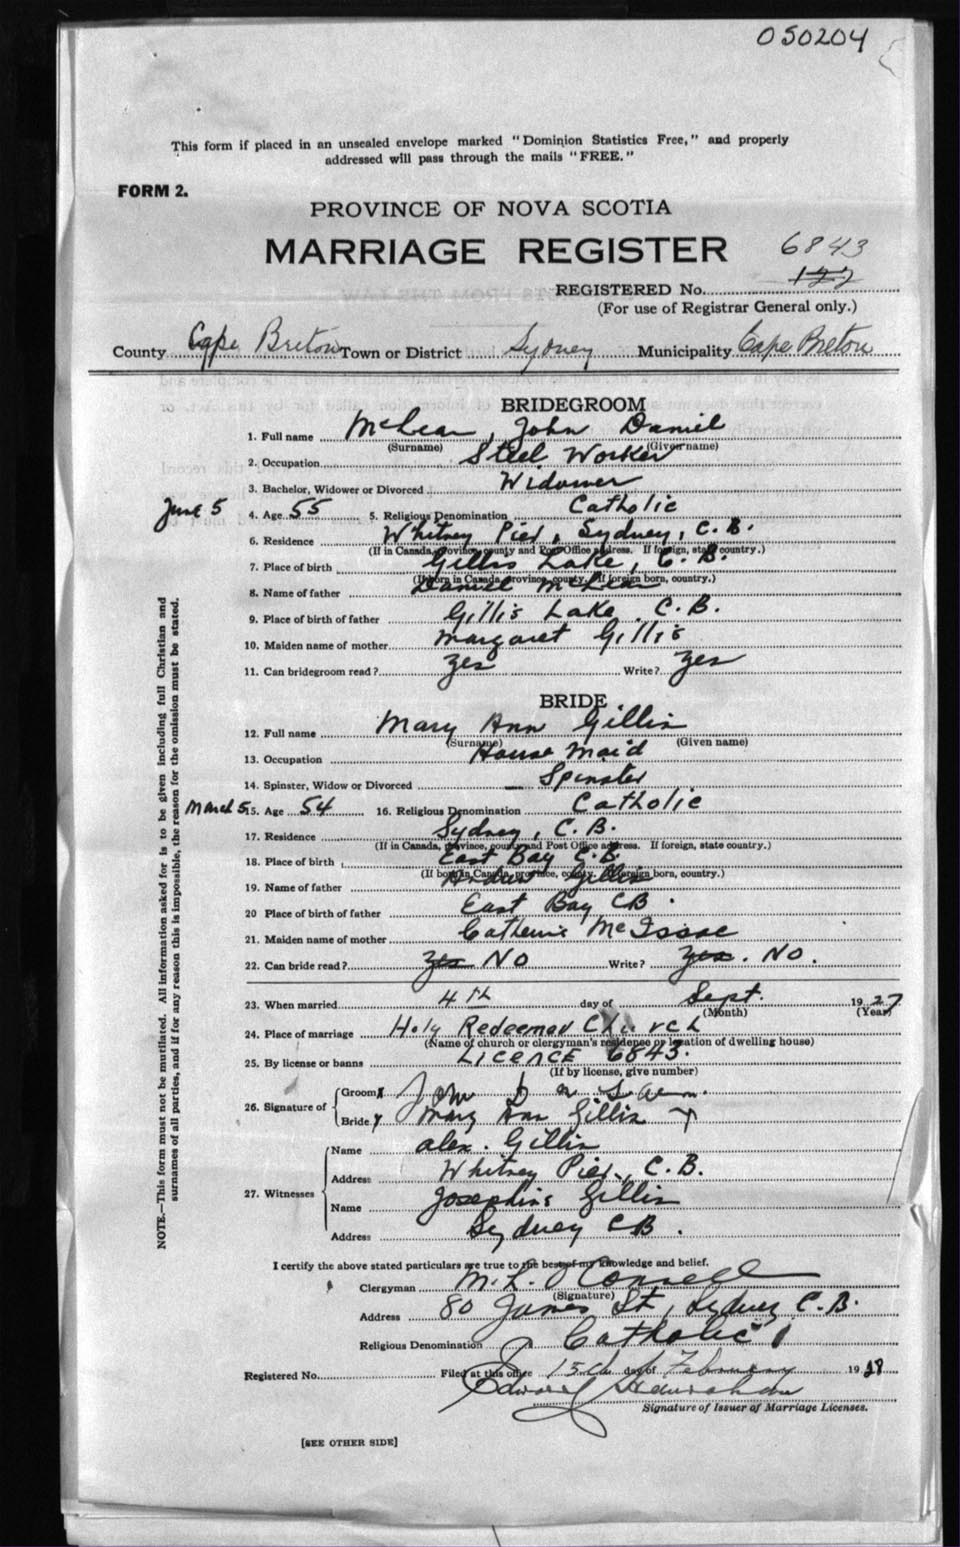 050204
This form if placed in an unsealed envelope marked "Dominion Statistics Free," and properly
addressed will pass through the mails "FREE."
FORM 2.
PROVINCE OF NOVA SCOTIA
MARRIAGE REGISTER
6843
REGISTERED No. 177
(For use of Registrar General only.)
County Cape Breton Town or District Sydney Municipality Cape Breton
BRIDEGROOM
1. Full name McLean, John Daniel
(Surname) (Given name)
2. Occupation Steel Worker
3. Bachelor, Widower or Divorced Widower
June 5 4. Age 55 5. Religious Denomination Catholic
6. Residence Whitney Pier, Sydney, C.B.
(If in Canada, province, county and Post Office address. If foreign, state country.)
7. Place of birth Gillis Lake, C.B.
(If born in Canada, province, county. If foreign born, country.)
8. Name of father Daniel McLean
9. Place of birth of father Gillis Lake. C.B.
10. Maiden name of mother Margaret Gillis
11. Can bridegroom read? Yes Write? Yes
BRIDE
12. Full name Mary Ann Gillis
(Surname) (Given name)
13. Occupation House Maid
14. Spinster, Widow or Divorced Spinster
March 5 15. Age 54 16. Religious Denomination Catholic
17. Residence Sydney, C.B.
(If in Canada, province, county and Post Office address. If foreign, state country.)
18. Place of birth East Bay C.B.
(If born in Canada, province, county. If foreign born, country.)
19. Name of father Andrew Gillis
20 Place of birth of father East Bay CB.
21. Maiden name of mother Catherine McIsaac
22. Can bride read? Yes NO Write? Yes. NO.
23. When married 4th day of Sept. 1927
(Month) (Year)
24. Place of marriage Holy Redeemer Church
(Name of church or clergyman's residence or location of dwelling house)
25. By license or banns LICENCE 6843.
(If by license, give number)
26. Signature of Groom X John D
Bride X Mary Ann Gillis X
27. Witnesses Name Alex. Gillis
Address Whitney Pier, C.B.
Name Josephine Gillis
Address Sydney CB.
I certify the above stated particulars are true to the best of my knowledge and belief.
Clergyman M. L. O'Connell
(Signature)
Address 80 James St, Sydney C.B.
Religious Denomination Catholic
Registered No. Filed at this office 15th day of February 1928
Edward
Signature of Issuer of Marriage Licenses.
[SEE OTHER SIDE]
NOTE.—This form must not be mutilated. All information asked for is to be given including full Christian and
surnames of all parties, and if for any reason this is impossible, the reason for the omission must be stated.